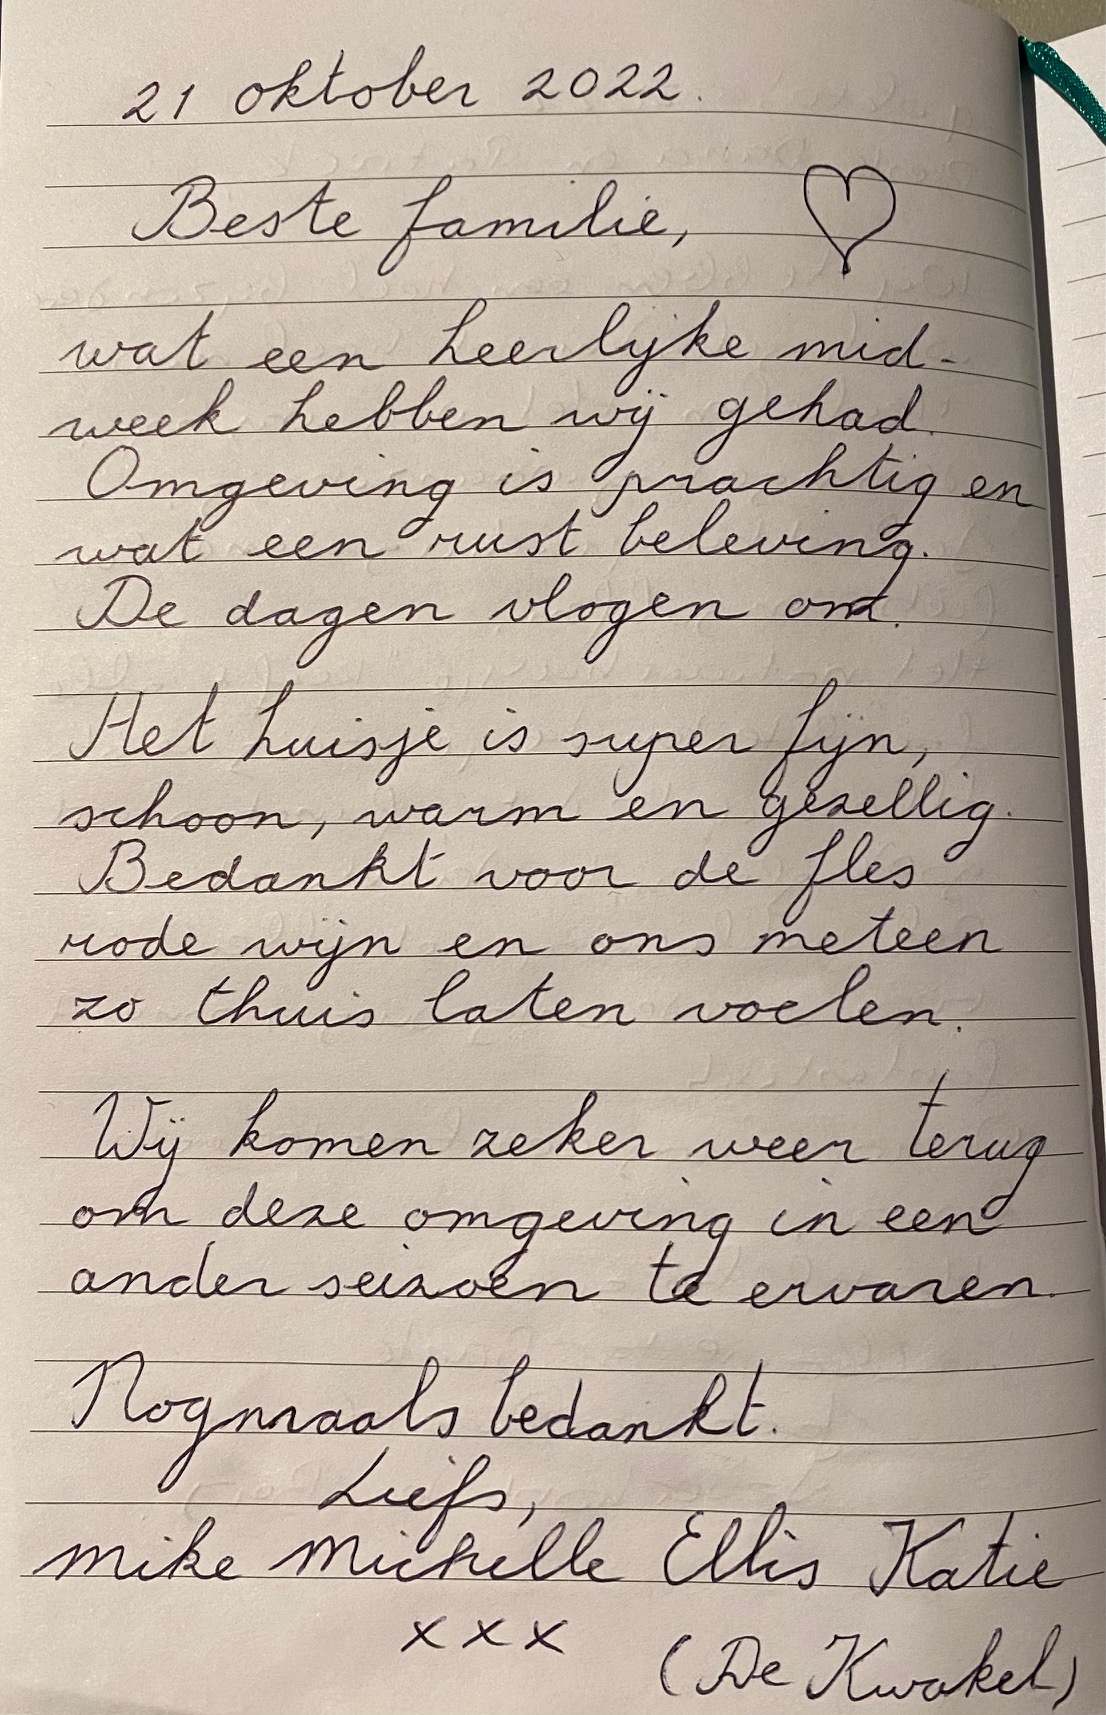 21 oktober 2022.
Beste familie,
wat een heerlijke mid-
week hebben wij gehad.
Omgeving is prachtig en
wat een rust beleving.
De dagen vlogen om.
Het huisje is super fijn,
schoon, warm en gezellig.
Bedankt voor de fles
rode wijn en ons meteen
zo thuis laten voelen.
Wij komen zeker weer terug
om deze omgeving in een
ander seizoen te ervaren.
Nogmaals bedankt.
Liefs,
Mike Michelle Ellis Katie
xxx
(De Kwakel)